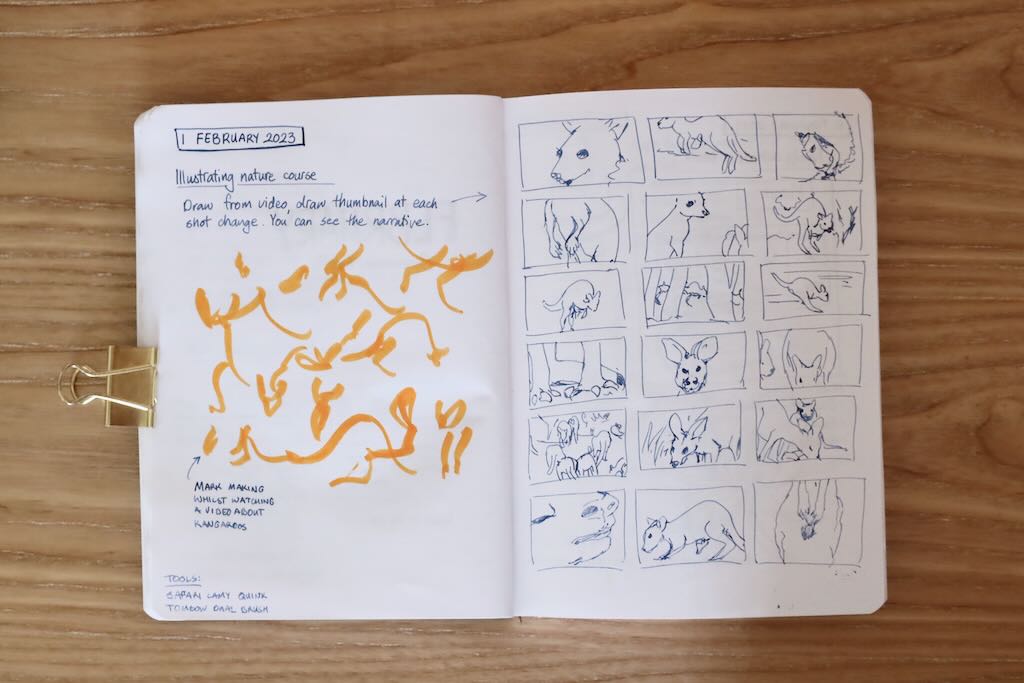 1 FEBRUARY 2023
Illustrating nature course
Draw from video, draw thumbnail at each
shot change. You can see the narrative.
MARK MAKING
WHILST WATCHING
A VIDEO ABOUT
KANGAROOS
TOOLS:
SAFARI LAMY QUINK
TOMBOW DUAL BRUSH